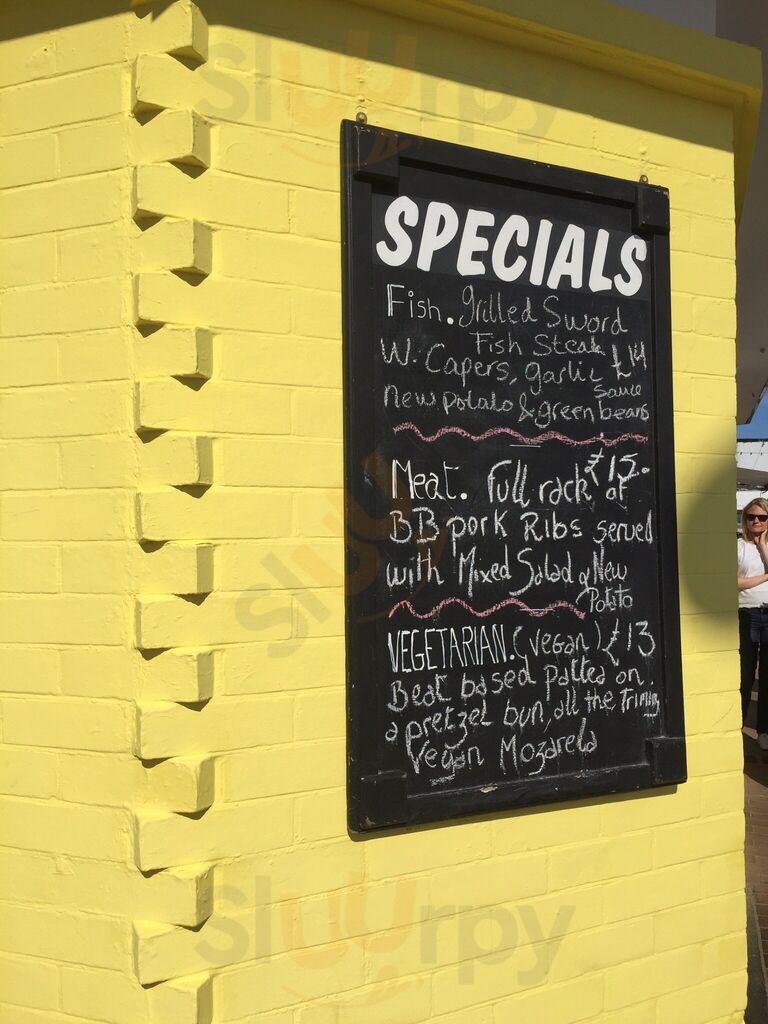 Sluurpy
SPECIALS
Fish. grilled Sword
Fish Steak £14
W. Capers, garlic
Sauce
new potato & green beans
£15.
Meat. Full rack of
BB pork Ribs served
with Mixed Salad & New
Potato
VEGETARIAN. (vegan) £13
Beat based pattea on
a pretzel bun, all the Triming
Vegan Mozarela
Sluurpy
Sluurpy